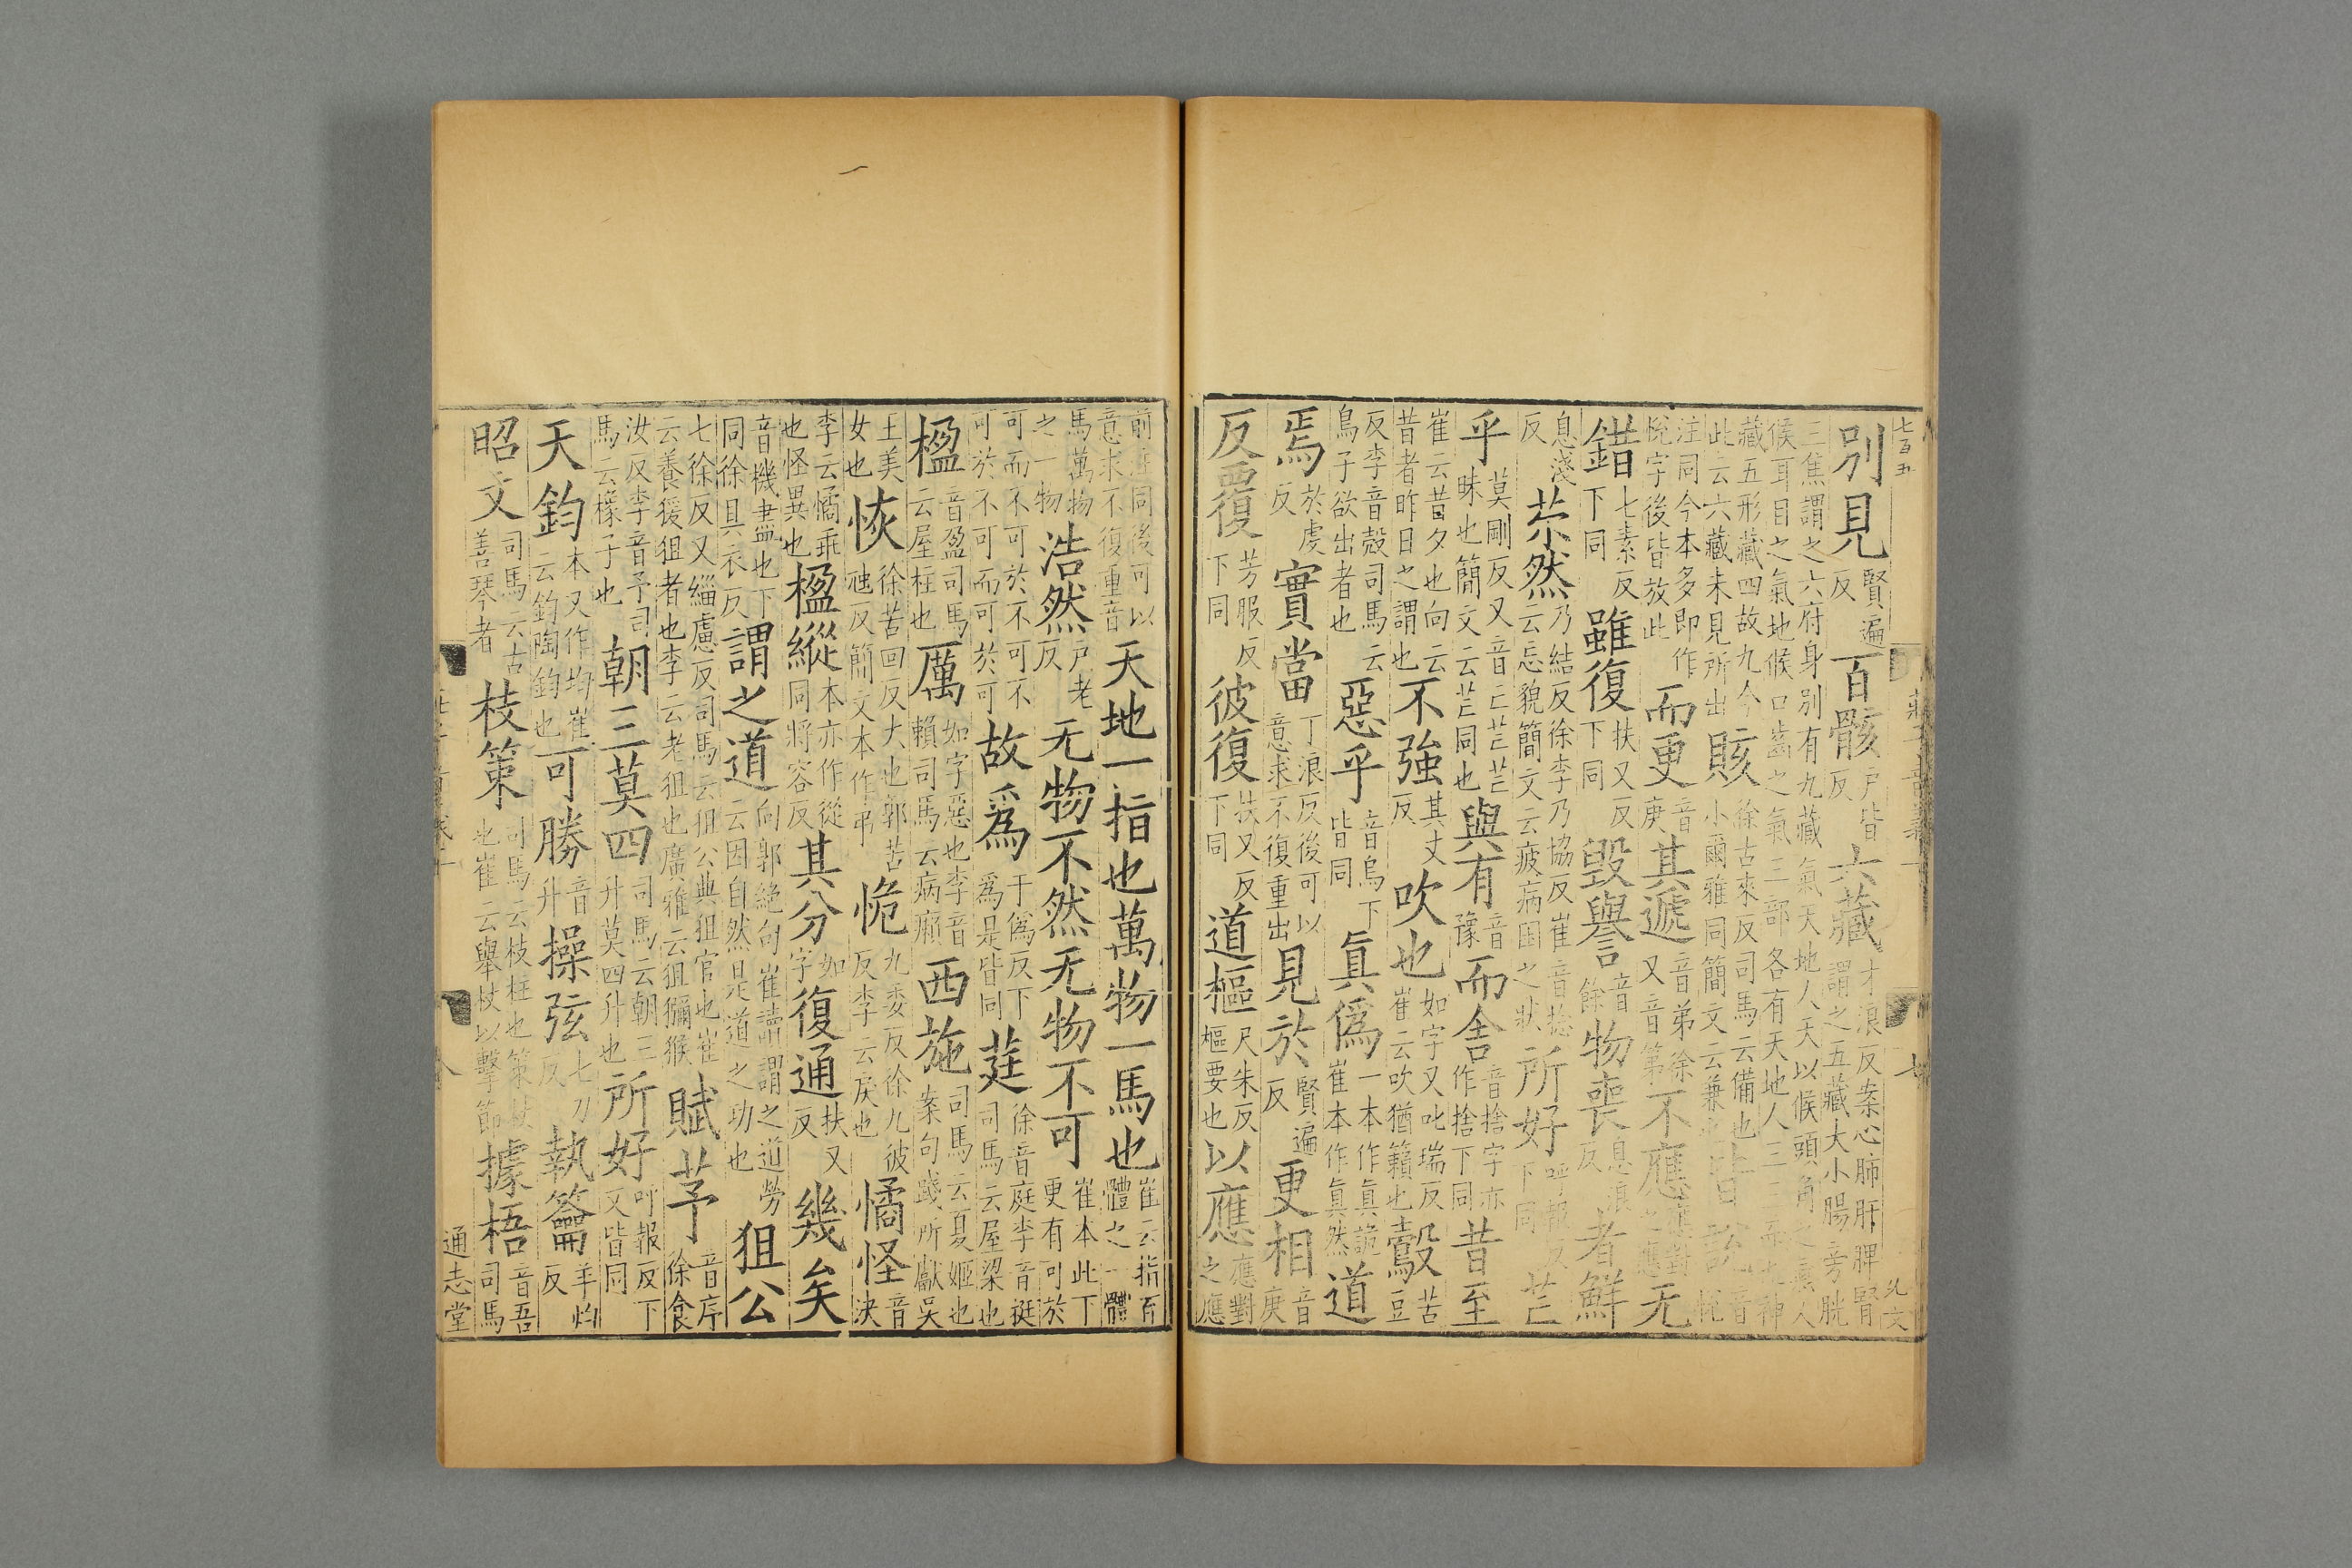 七百五
莊子音義一
七
別見賢遍反百骸戶皆反六藏才浪反案心肺肝脾腎謂之五藏大小腸旁胱
三焦謂之六府身別有九藏氣天地人天以候頭角之氣人候耳目之氣地候口齒之氣三部各有天地人三三而九神
藏五形藏四故九今此云六藏未見所出賅徐古來反司馬云備也小爾雅同簡文云兼也皆說音悅
注同今本多即作悅字後皆放此而更音庚其遞音弟徐又音第不應應對之應无
錯七素反下同雖復扶又反下同毀譽音餘物喪息浪反者鮮
息淺反苶然乃結反徐李乃協反崔音捻云忘貌簡文云疲病困之狀所好呼報反下同芒
乎莫剛反又音亡芒芒昧也簡文云芒同也與有音豫而舍音捨字亦作捨下同昔至
崔云昔夕也向云昔者昨日之謂也不強其丈反吹也如字又叱瑞反崔云吹猶籟也鷇苦豆
反李音殼司馬云鳥子欲出者也惡乎音烏下皆同真偽一本作真詭崔本作真然道
焉於虔反實當丁浪反後可以意求不復重出見於賢遍反更相音庚
反覆芳服反下同彼復扶又反下同道樞尺朱反樞要也以應應對之應
前注同後可以意求不復重音天地一指也萬物一馬也崔云指百體之一體
馬萬物之一物浩然戶老反无物不然无物不可崔本此下更有可於
可而不可於不可不可於不可而可於可故為于偽反下為是皆同莛徐音庭李音挺司馬云屋梁也
楹音盈司馬云屋柱也厲如字惡也李音賴司馬云病癩西施司馬云夏姬也案句踐所獻吳
王美女也恢徐苦回反大也郭苦虺反簡文本作弔恑九委反徐九彼反李云戾也憰怪音決
李云憰乖也怪異也楹縱本亦作從同將容反其分如字復通扶又反幾矣
音機盡也下同徐具衣反謂之道向郭絕句崔讀謂之道勞云因自然是道之功也狙公
七徐反又緇慮反司馬云狙公典狙官也崔云養猨狙者也李云老狙也廣雅云狙獼猴賦芧音序徐食
汝反李音予司馬云橡子也朝三莫四司馬云朝三升莫四升也所好呼報反下文皆同
天鈞本又作均崔云鈞陶鈞也可勝音升操弦七刀反執籥羊灼反
昭文司馬云古善琴者枝策司馬云枝柱也策杖也崔云舉杖以擊節據梧音吾司馬
八
通志堂